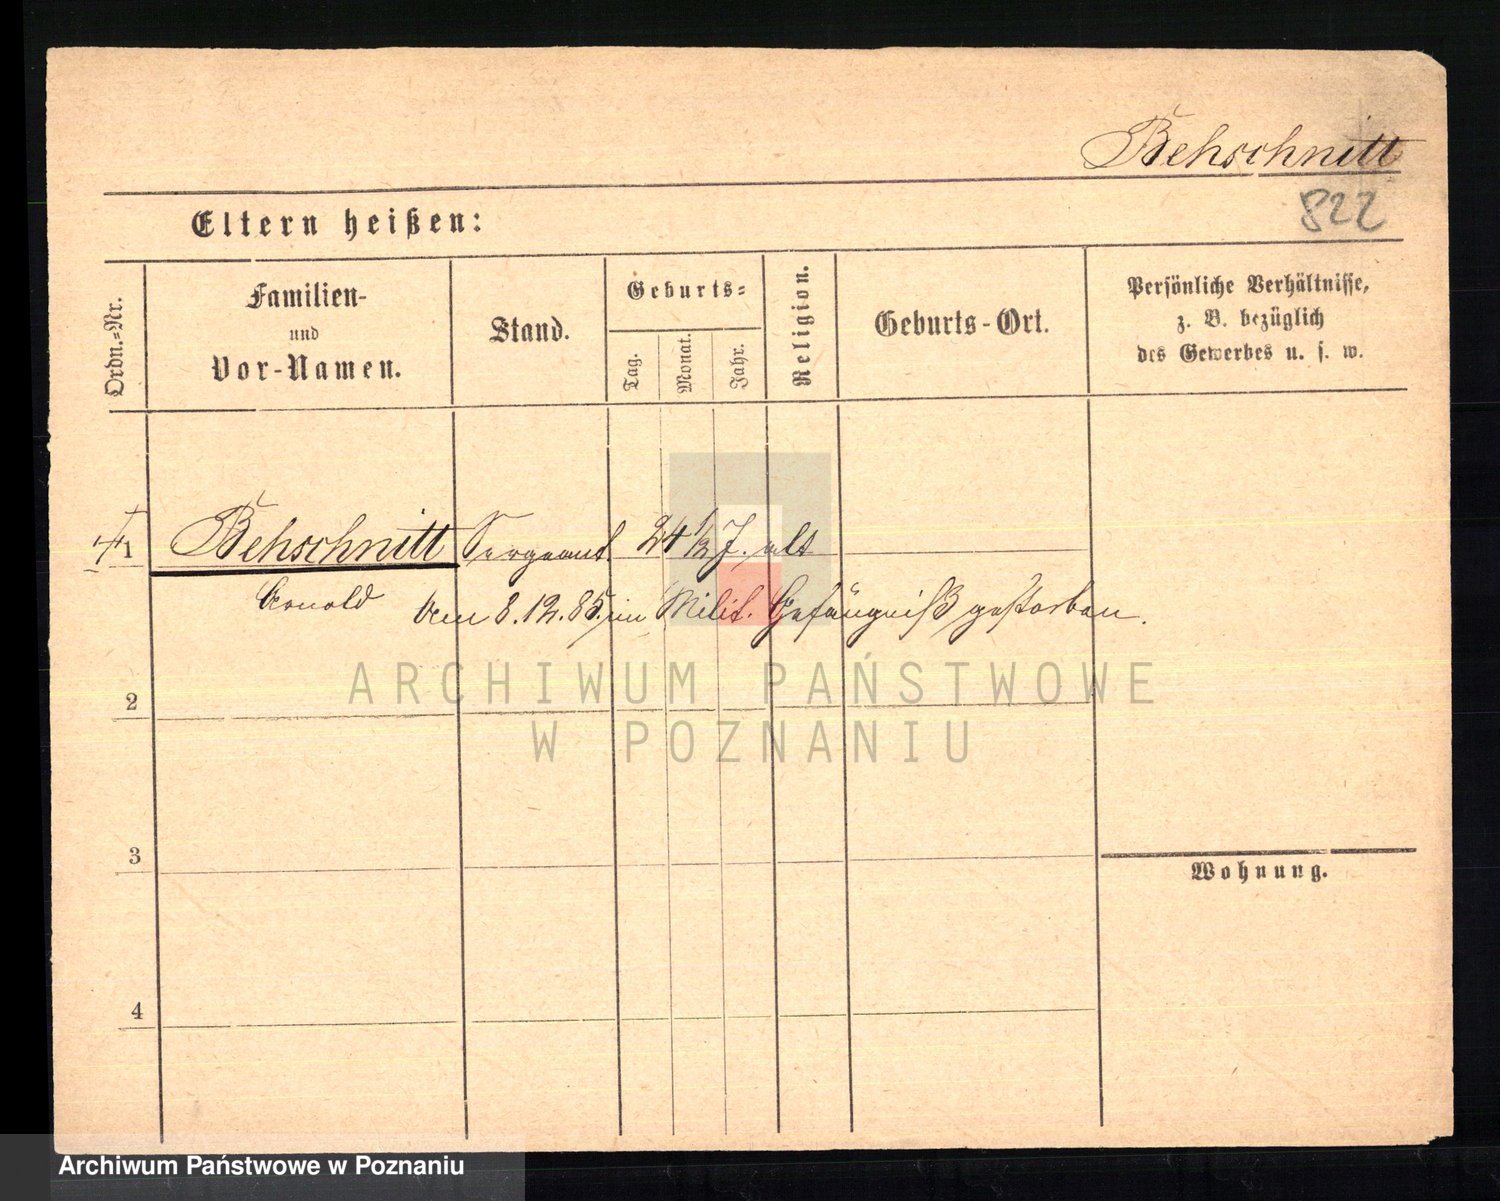 Behschnitt
822
Eltern heißen:
Ordn.=Nr.
Familien-
und
Vor-Namen.
Stand.
Geburts=
Tag.
Monat.
Jahr.
Religion.
Geburts-Ort.
Persönliche Verhältnisse,
z. B. bezüglich
des Gewerbes u. s. w.
1 Behschnitt Sergeant. 24 1/2 J. alt
Arnold am 8.12.85. im Milit. Gefängniß gestorben.
ARCHIWUM PAŃSTWOWE
W POZNANIU
2
3
Wohnung.
4
Archiwum Państwowe w Poznaniu